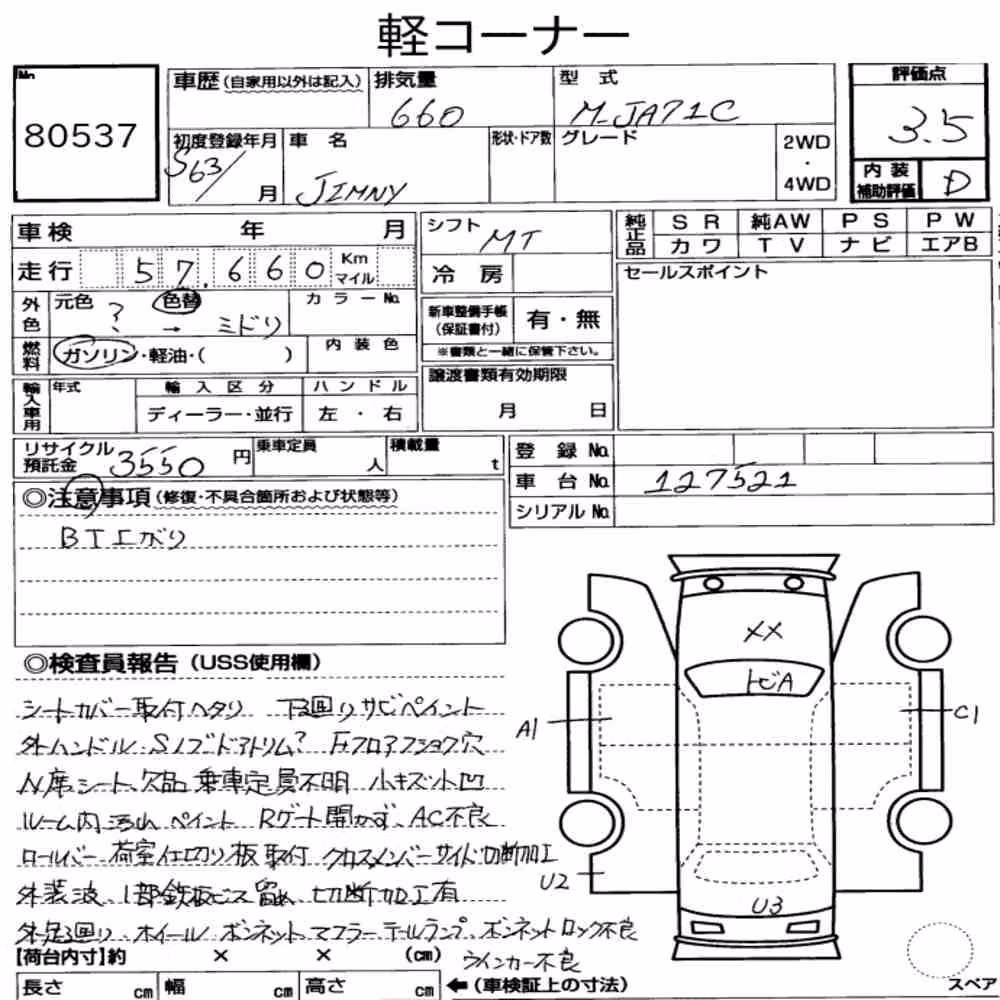 軽コーナー
No.
80537
車歴 (自家用以外は記入)
排気量
660
型式
M-JA71C
評価点
3.5
初度登録年月
S63/
月
車名
JIMNY
形状・ドア数
グレード
2WD
・
4WD
内装
補助評価
D
車検 年 月
シフト
MT
純正品
SR 純AW PS PW
カワ TV ナビ エアB
走行 57,660 Km
マイル
冷房
セールスポイント
外色
元色 ? → 色替 ミドリ
カラーNo.
新車整備手帳
(保証書付)
有・無
※書類と一緒に保管下さい。
燃料
ガソリン・軽油・( )
内装色
輸入車用
年式
輸入区分
ディーラー・並行
ハンドル
左・右
譲渡書類有効期限
月 日
リサイクル
預託金
3550 円
乗車定員
人
積載量
t
登録No.
車台No. 127521
シリアルNo.
◎注意事項 (修復・不具合箇所および状態等)
BT上がり
◎検査員報告 (USS使用欄)
シートカバー取付ヘタリ 下回りサビペイント
外ハンドル Sノブドアトリム? Fフロアフショク穴
N席シート欠品 乗車定員不明 小キズ小凹
ルーム内汚れ ペイント Rゲート開かず、AC不良
ロールバー 荷室仕切り板取付 クロスメンバーサイド切断加工
外装波、1部鉄板ビス留め 切断加工有
外足回り ホイール ボンネット マフラー テールランプ、ボンネットロック不良
ウインカー不良
XX
トビA
A1
C1
U2
U3
【荷台内寸】約 × × (cm)
長さ cm 幅 cm 高さ cm
←(車検証上の寸法)
スペア